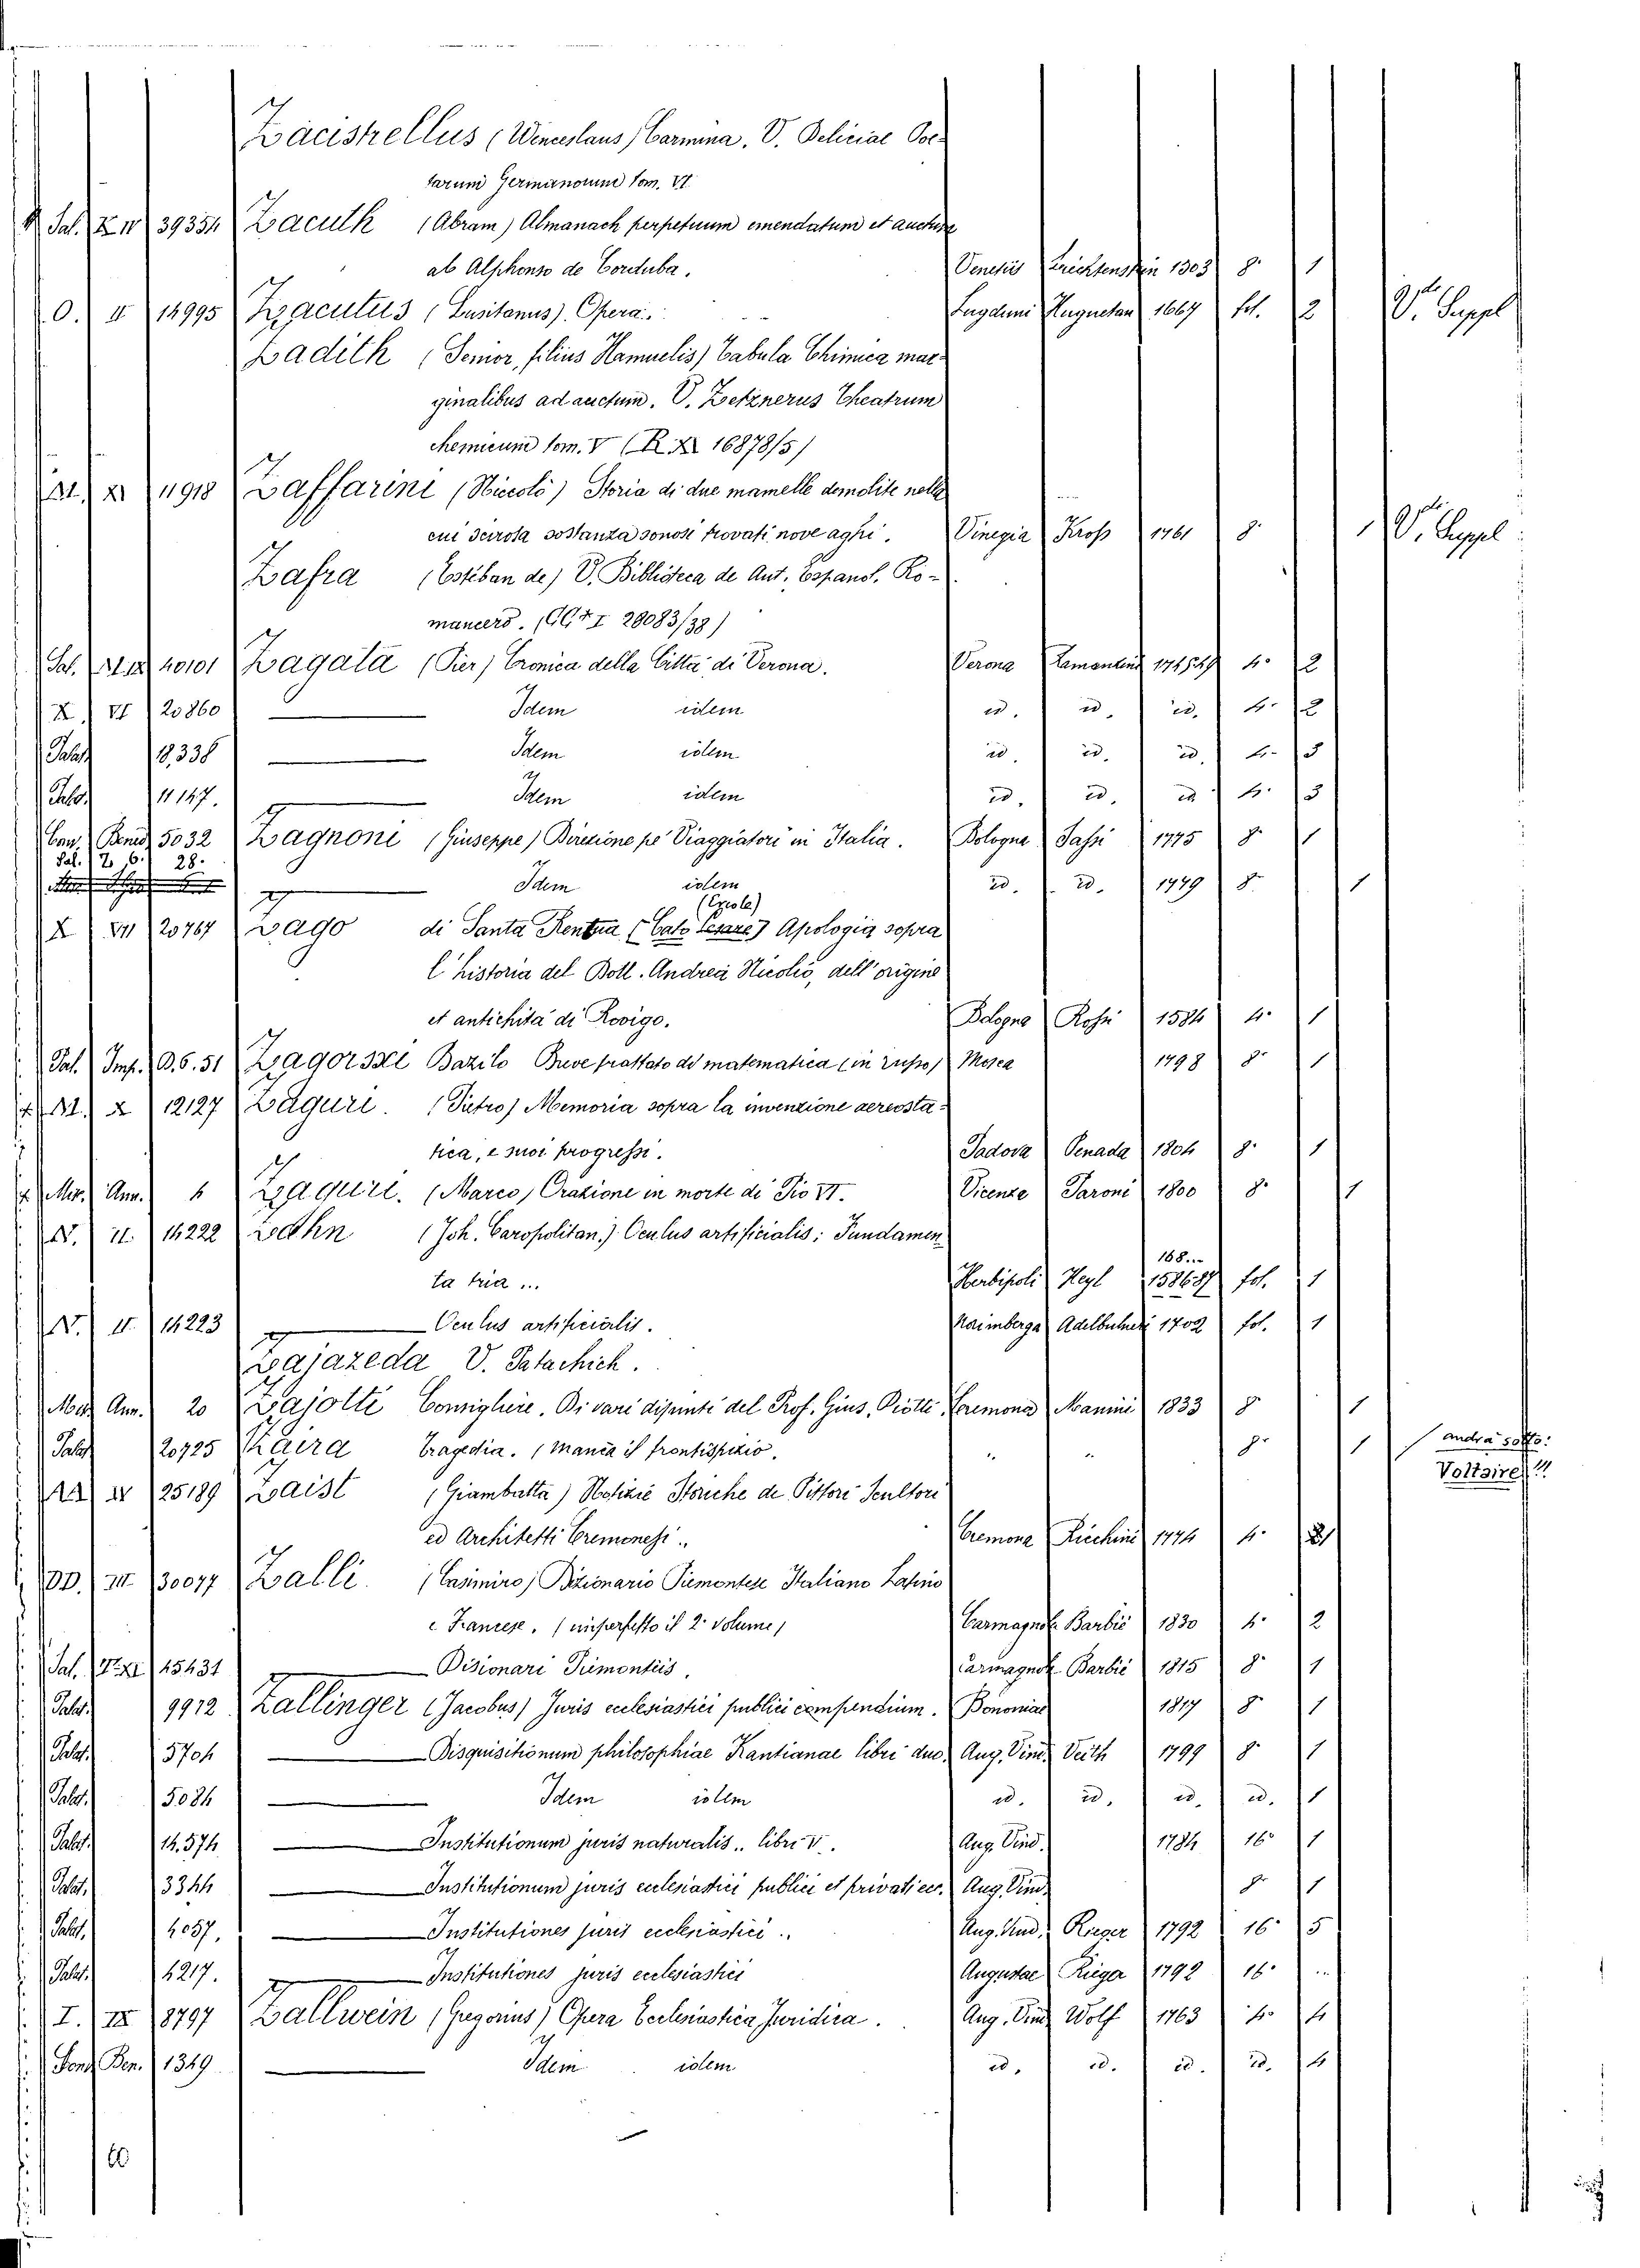 Zacistrellus (Winceslaus) Carmina. V. Deliciae Poe-
tarum Germanorum tom. VI
Sal. X IV 39354 Zacuth (Abram) Almanach perpetuum emendatum et auctum
ab Alphonso de Corduba. Venetiis Liechtenstein 1503 8° 1
O. II 14995 Zacutus (Lusitanus) Opera. Lugduni Huguetan 1667 fol. 2 V. Suppl
Zadith (Senior, filius Hamuelis) Tabula Chimica mar-
ginalibus adauctum. V. Zetznerus Theatrum
chemicum tom. V (R XI 16878/5)
XI 11918 Zaffarini (Niccolò) Storia di due mamelle demolite nella
cui scirosa sostanza sonosi trovati nove aghi. Vinegia 1761 8° 1 V. Suppl
Zafra (Estéban de) V. Biblioteca de Aut. Español. Ro-
mancero. ( 28083/38)
Sal. 40101 Zagata (Pier) Cronica della Città di Verona. Verona Ramanzini 1745 49 4° 2
X VI 20860 Idem idem id. id. id. 4° 2
Palat 18,338 Idem idem id. id. id. 4° 3
Palat. 11147. Idem idem id. id. id. 4° 3
Con. Bened 5032 Zagnoni (Giuseppe) Direzione pe' Viaggiatori in Italia. Bologna Sassi 1775 8° 1
Sal. Z 6. 28. Idem idem id. id. 1779 8° 1
(Ercole)
X VII 20767 Zago di Santa Rentua (Cato Cesare) Apologia sopra
l'historia del Dott. Andrea Nicolio, dell'origine
et antichità di Rovigo. Bologna Rossi 1584 4° 1
Pal. Imp. B. 6. 51 Zagorski Bazilo Breve trattato di matematica (in russo) Mosca 1798 8° 1
X 12127 Zaguri. (Pietro) Memoria sopra la invenzione aereosta-
tica, e suoi progressi. Padova Penada 1804 8° 1
Mis. Ann. 4 Zaguri. (Marco) Orazione in morte di Pio VI. Vicenza Paroni 1800 8° 1
N. II. 14222 Zahn (Joh. Caropolitan.) Oculus artificialis: Fundamen-
168...
ta tria ... Herbipoli Heyl fol. 1
N. II. 14223 Oculus artificialis. Noimberga Adelbulner 1702 fol. 1
Zajazeda V. Patachich.
Mis Ann. 20 Zajotti Consigliere. Di vari dipinti del Prof. Gius. Diotti Cremona Manini 1833 8° 1
Palat 20725 Zaira Tragedia. (manca il frontispizio. " " 8° 1 andrà sotto:
Voltaire!!!
IV 25189 Zaist (Giambatta) Notizie Storiche de' Pittori Scultori
ed Architetti Cremonesi. Cremona Ricchini 1774 4°
DD. III 30077 Zalli. (Casimiro) Dizionario Piemontese Italiano Latino
e Francese. (imperfetto il 2° volume) Carmagnola Barbiè 1830 4° 2
Sal. XI 45431 Disionari Piemonteis. Carmagnola Barbiè 1815 8° 1
Palat. 9912 Zallinger (Jacobus) Juris ecclesiastici publici compendium. Bononiae 1817 8° 1
Palat. 5704 Disquisitionum philosophiae Kantianae libri duo. Aug. Vind. Veith 1799 8° 1
Palat. 5084 Idem idem id. id. id. id. 1
Palat. 14,574 Institutionum juris naturalis.. libri V. Aug. Vind. 1784 16° 1
Palat. 3344 Institutionum juris ecclesiastici publici et privati ecc. Aug. Vind. 8° 1
Palat. 4057. Institutiones juris ecclesiastici.. Aug. Vind. Rieger 1792 16° 5
Palat. 4217. Institutiones juris ecclesiastici Augustae Rieger 1792 16° ..
I. IX 8797 Zallwein (Gregorius) Opera Ecclesiastica Juridica. Aug. Vind Wolf 1763 4° 4
Fond. Ben. 1349 Idem idem id. id. id. id. 4